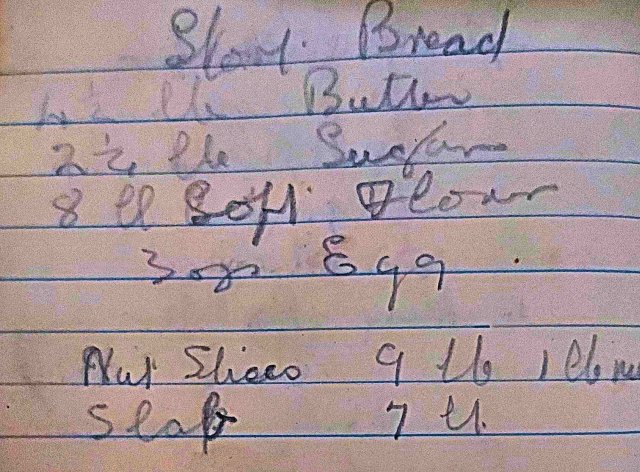 Short Bread
4½ lb Butter
2½ lb Sugar
8 lb Soft Flour
3 ozs Egg
Nut Slices 9 lb 1 lb nu
Slab 7 lb